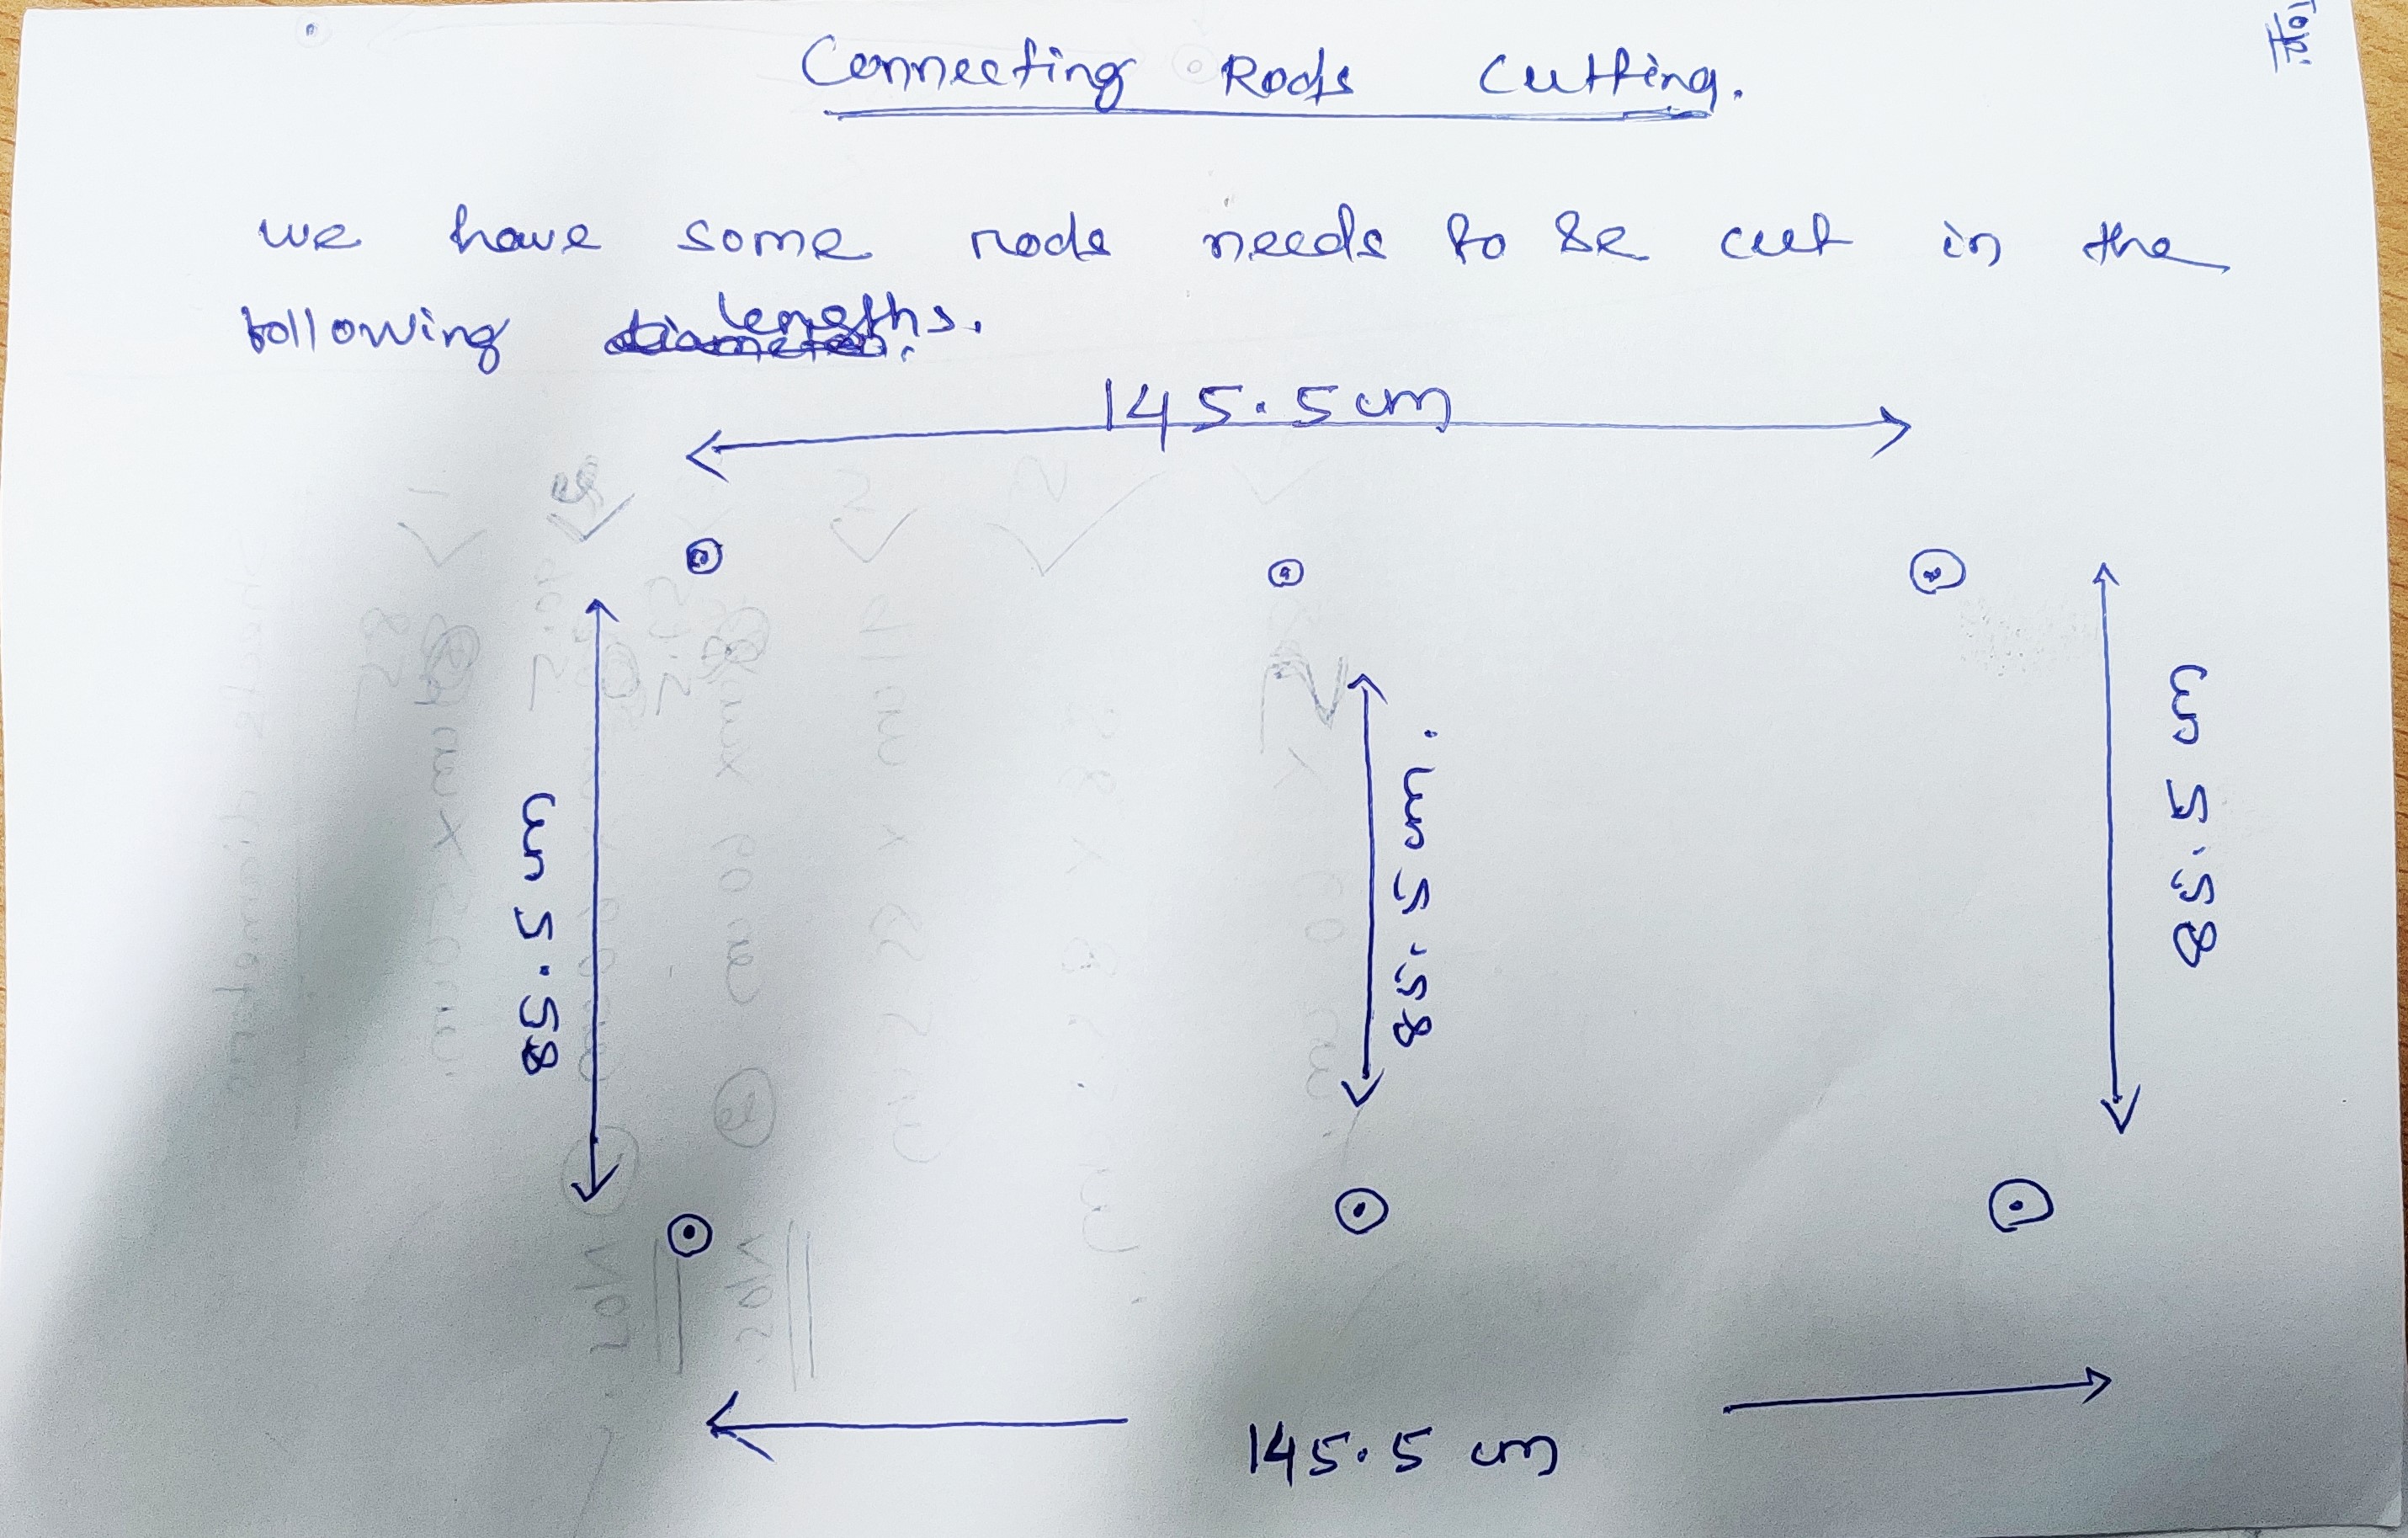 Connecting Rods Cutting.
we have some rods needs to be cut in the
following diameter. lengths.
145.5 cm
85.5 cm
85.5 cm
85.5 cm
145.5 cm